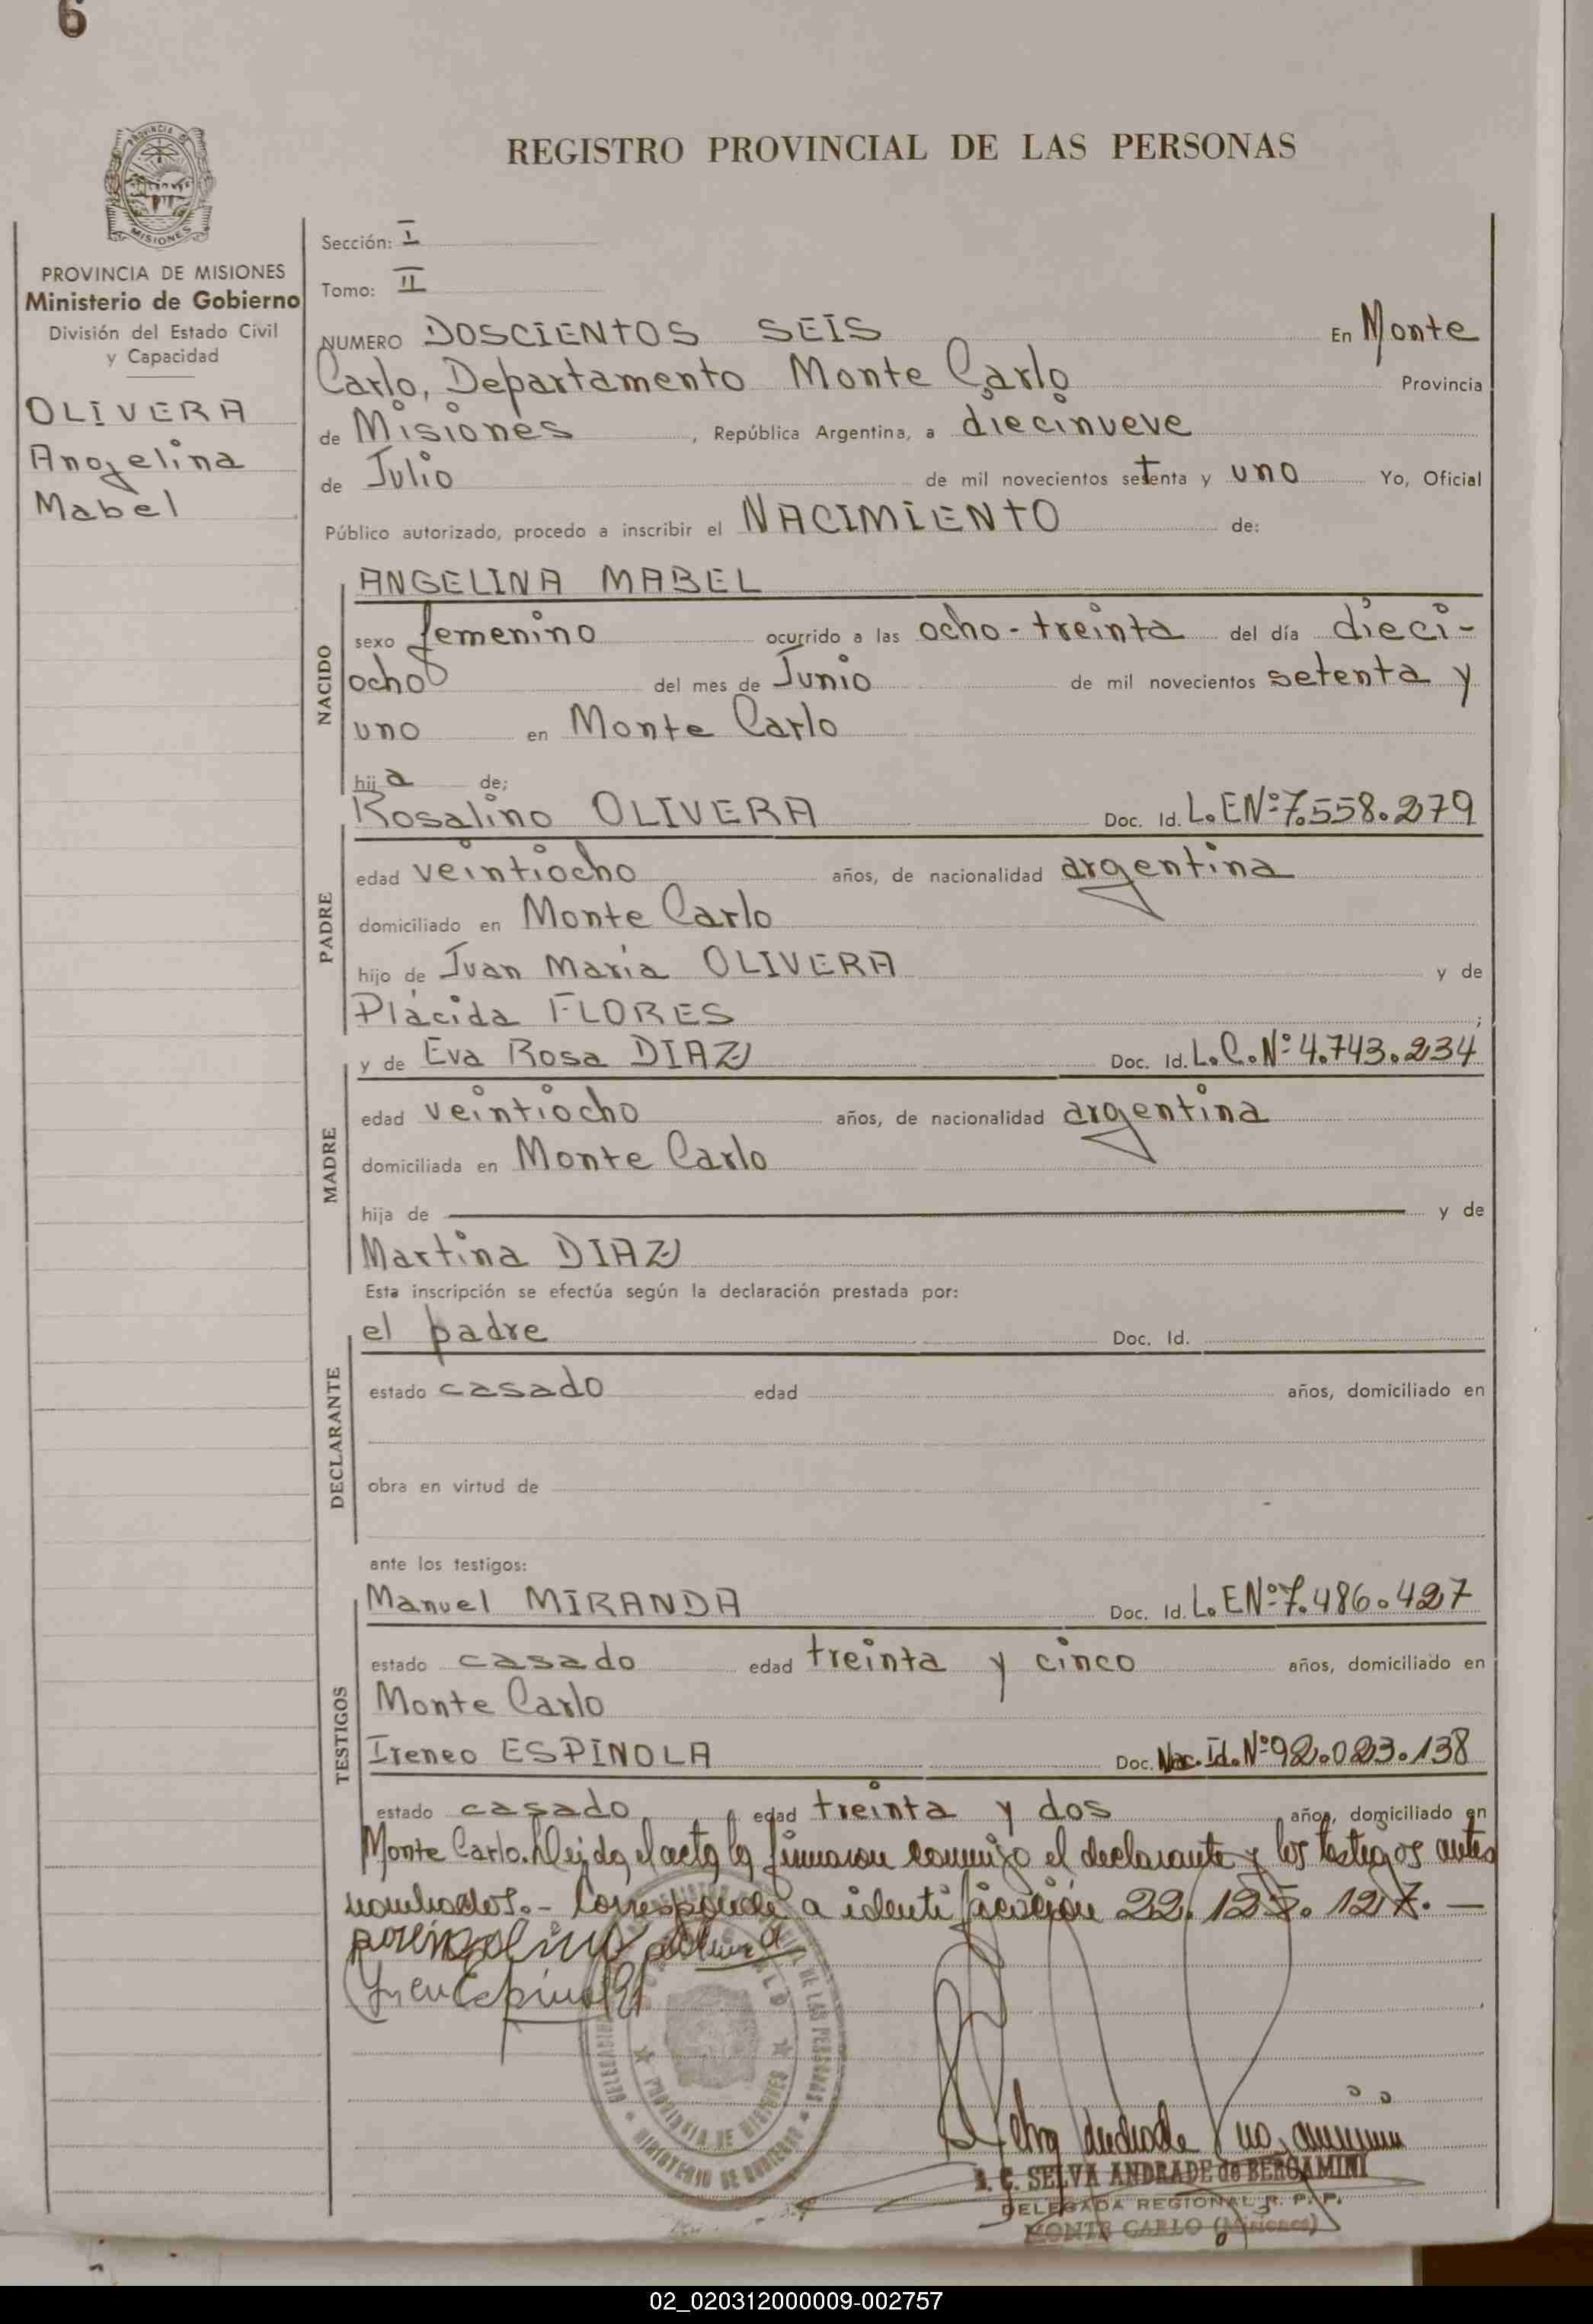 6
REGISTRO PROVINCIAL DE LAS PERSONAS
PROVINCIA DE
MISIONES
PROVINCIA DE MISIONES
Ministerio de Gobierno
División del Estado Civil
y Capacidad
OLIVERA
Angelina
Mabel
Sección: I
Tomo: II
NUMERO DOSCIENTOS SEIS En Monte
Carlo, Departamento Monte Carlo Provincia
de Misiones, República Argentina, a diecinueve
de Julio de mil novecientos setenta y uno Yo, Oficial
Público autorizado, procedo a inscribir el NACIMIENTO de:
NACIDO
ANGELINA MABEL
sexo femenino ocurrido a las ocho-treinta del día dieci-
ocho del mes de Junio de mil novecientos setenta y
uno en Monte Carlo
hija de;
PADRE
Rosalino OLIVERA Doc. Id. L.E Nº 7.558.279
edad veintiocho años, de nacionalidad argentina
domiciliado en Monte Carlo
hijo de Juan María OLIVERA y de
Plácida FLORES ;
MADRE
y de Eva Rosa DIAZ Doc. Id. L.C. Nº 4.743.234
edad veintiocho años, de nacionalidad argentina
domiciliada en Monte Carlo
hija de y de
Martina DIAZ
Esta inscripción se efectúa según la declaración prestada por:
DECLARANTE
el padre Doc. Id.
estado casado edad años, domiciliado en
obra en virtud de
ante los testigos:
TESTIGOS
Manuel MIRANDA Doc. Id. L.E Nº 7.486.427
estado casado edad treinta y cinco años, domiciliado en
Monte Carlo
Ireneo ESPINOLA Doc. Nac. Id. Nº 92.023.138
estado casado edad treinta y dos años, domiciliado en
Monte Carlo. Leida el acta la firmaron conmigo el declarante y los testigos antes
nombrados.- Corresponde a identificación 22.125.127.—
PROVINCIA DE MISIONES
MINISTERIO DE GOBIERNO
DE LAS PERSONAS
S. C. SELVA ANDRADE de BERGAMINI
DELEGADA REGIONAL R. P. P.
MONTE CARLO (Misiones)
02_020312000009-002757